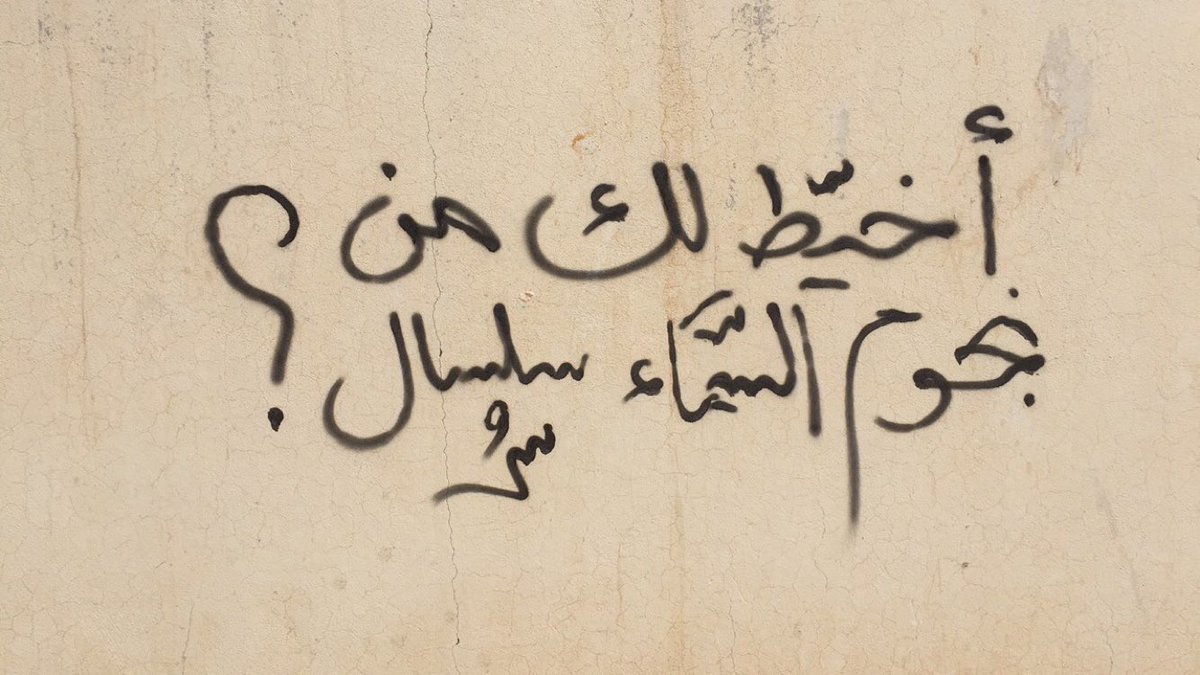 أخيّط لك من ؟
نجوم السَّمَاء سلسال